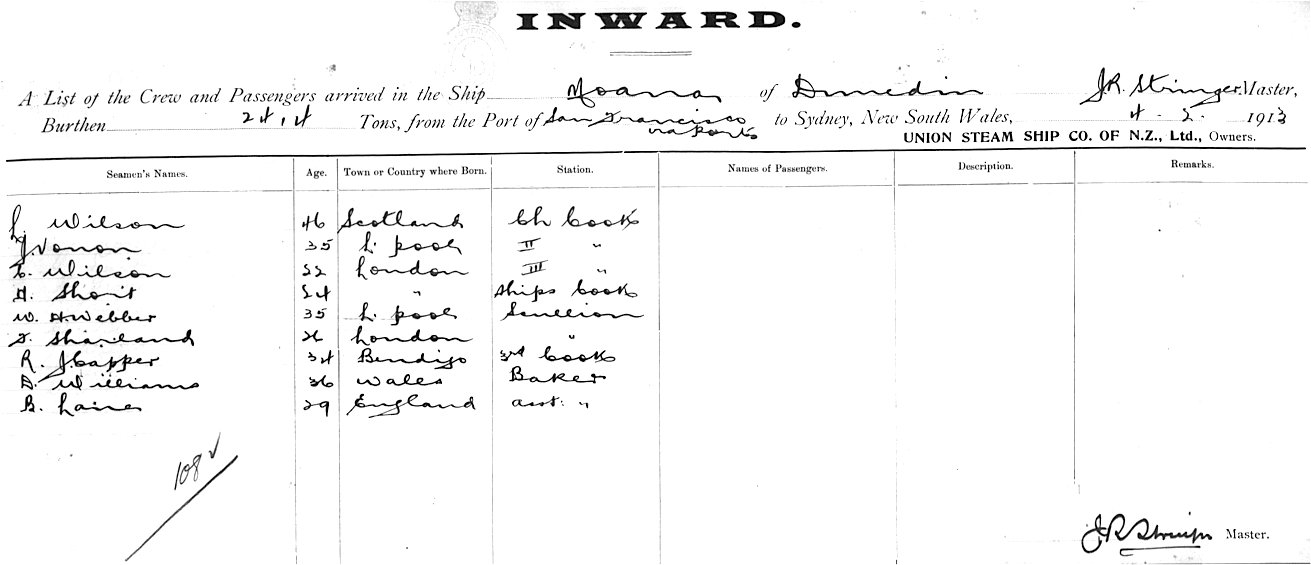 INWARD.
A List of the Crew and Passengers arrived in the Ship Moana of Dunedin J.R. Stringer Master,
Burthen 2414 Tons, from the Port of San Francisco via ports to Sydney, New South Wales, 4 . 2 . 1913
UNION STEAM SHIP CO. OF N.Z., Ltd., Owners.
Seamen's Names. Age. Town or Country where Born. Station. Names of Passengers. Description. Remarks.
L. Wilson 46 Scotland Ch Cook
J. Vonon 35 L. pool II "
E. Wilson 22 London III "
H. Short 24 " Ships Cook
W. H. Webber 35 L. pool Scullion
Sharland 26 London "
R. J. Capper 34 Bendigo 3rd Cook
D. Williams 36 Wales Baker
B. Laine 29 England asst: "
108 ✓
J R Stringer Master.